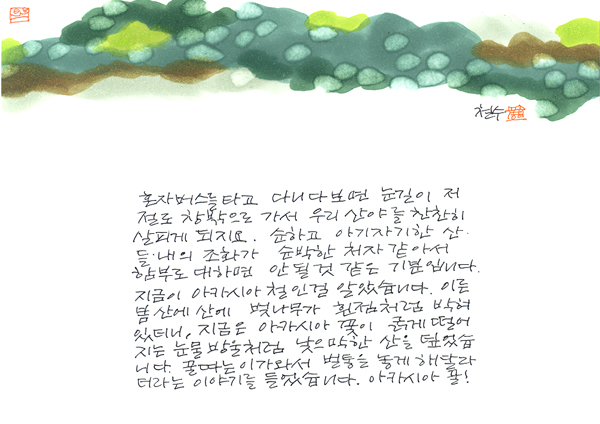 철수
혼자버스를 타고 다니다보면 눈길이 저
절로 창밖으로 가서 우리 산야를 찬찬히
살피게 되지요. 순하고 아기자기한 산·
들·내의 조화가 순박한 처자 같아서
함부로 대하면 안될것 같은 기분입니다.
지금이 아카시아 철인걸 알았습니다. 이른
봄 산에 산에 벚나무가 흰점처럼 박혀
있더니, 지금은 아카시아 꽃이 굵게 떨어
지는 눈물방울처럼 낮으막한 산을 덮었습
니다. 꿀따는이가와서 벌통을 놓게 해달라
더라는 이야기를 들었습니다. 아카시아 꿀!